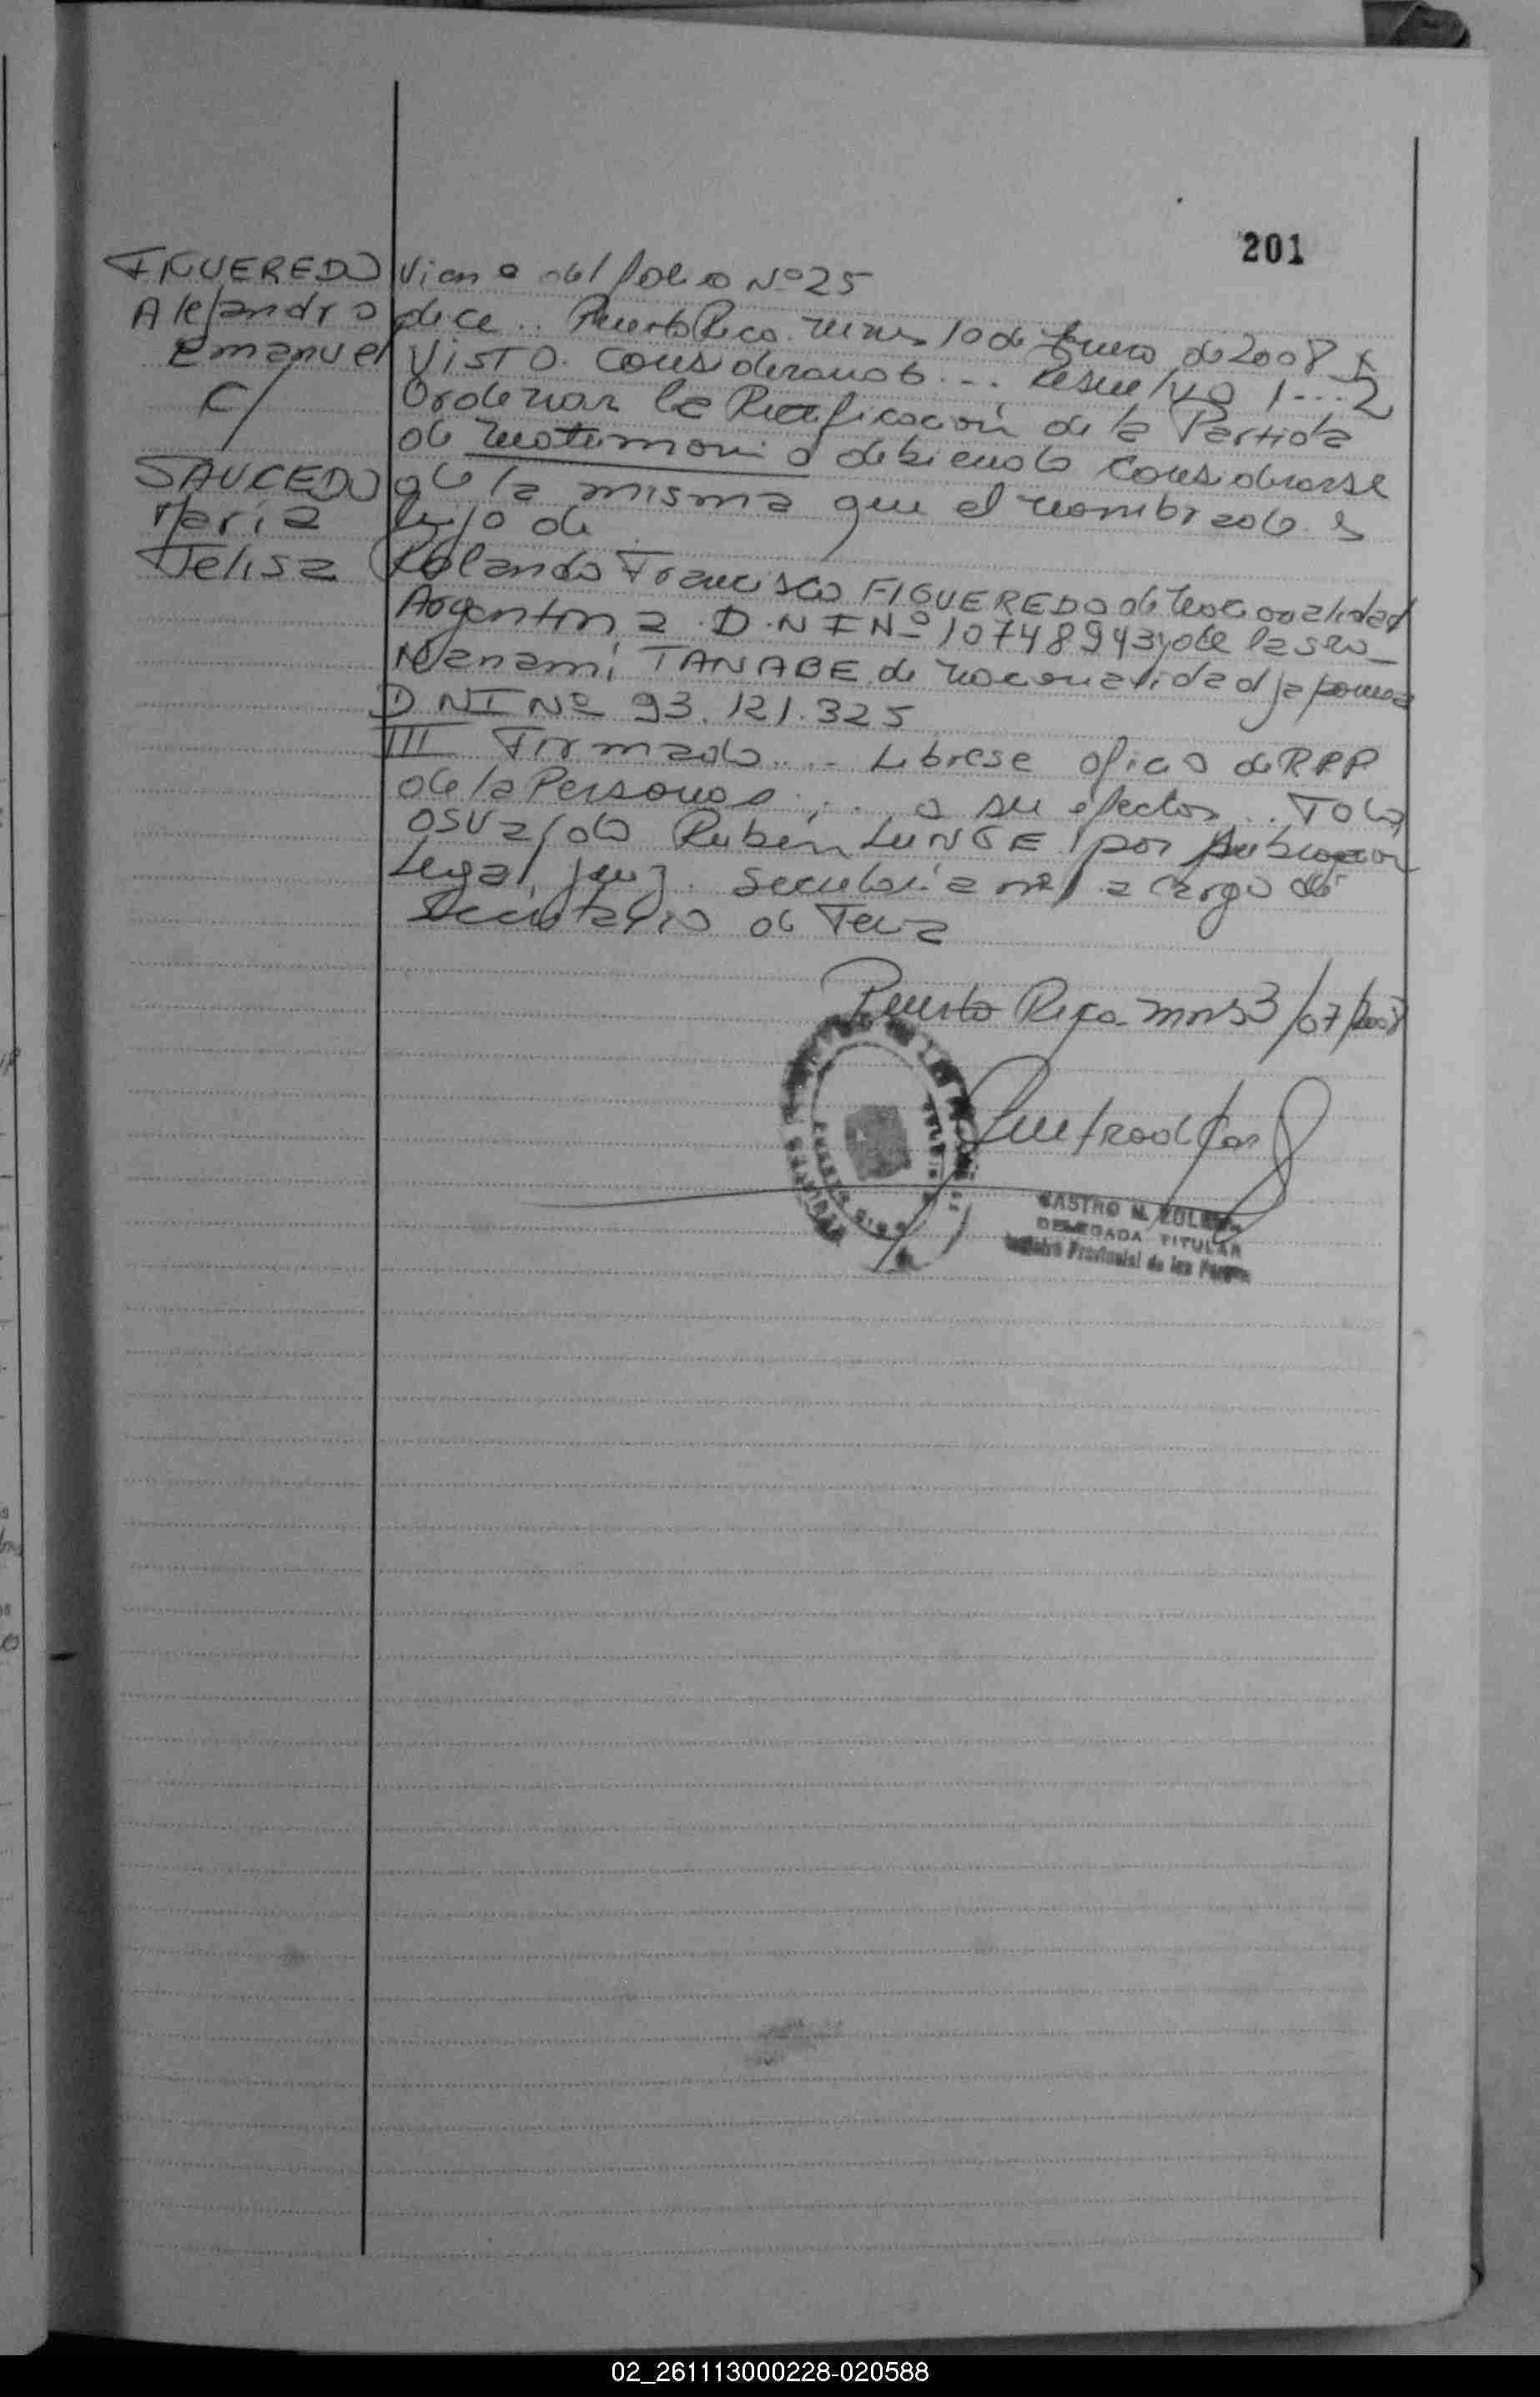 201
FIGUEREDO
Alejandro
Emanuel
C/
SAUCEDO
Maria
Telisa
Viene del folio Nº 25
dice.. Puerto Rico. Mnes 10 de Enero de 2008 y
VISTO. Considerando... Resuelvo 1...2
Ordenar la Rectificación de la Partida
de matrimonio debiendo considerarse
de la misma que el nombrado es
hijo de
Rolando Francisco FIGUEREDO de nacionalidad
Argentina. D.N.I Nº 10748943 y de la sra
Manami TANABE de nacionalidad japonesa
DNI Nº 93.121.325
III Firmado.... Librese oficio de RPP
de la Personas... a su efectos..
Osvaldo Ruben LUNGE por Subrogacion
Legal, Juz. Secretaria nº 1 a cargo de
Secretario de
Puerto Rico mns 3/07/2008
CASTRO M.
DELEGADA TITULAR
Registro Provincial de las Person
02_261113000228-020588